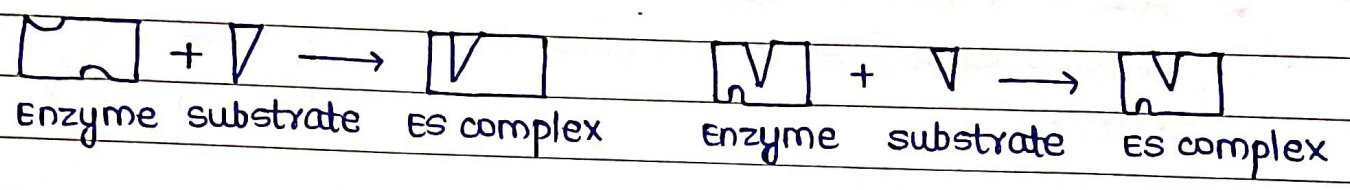 + → + →
Enzyme substrate ES complex Enzyme substrate ES complex